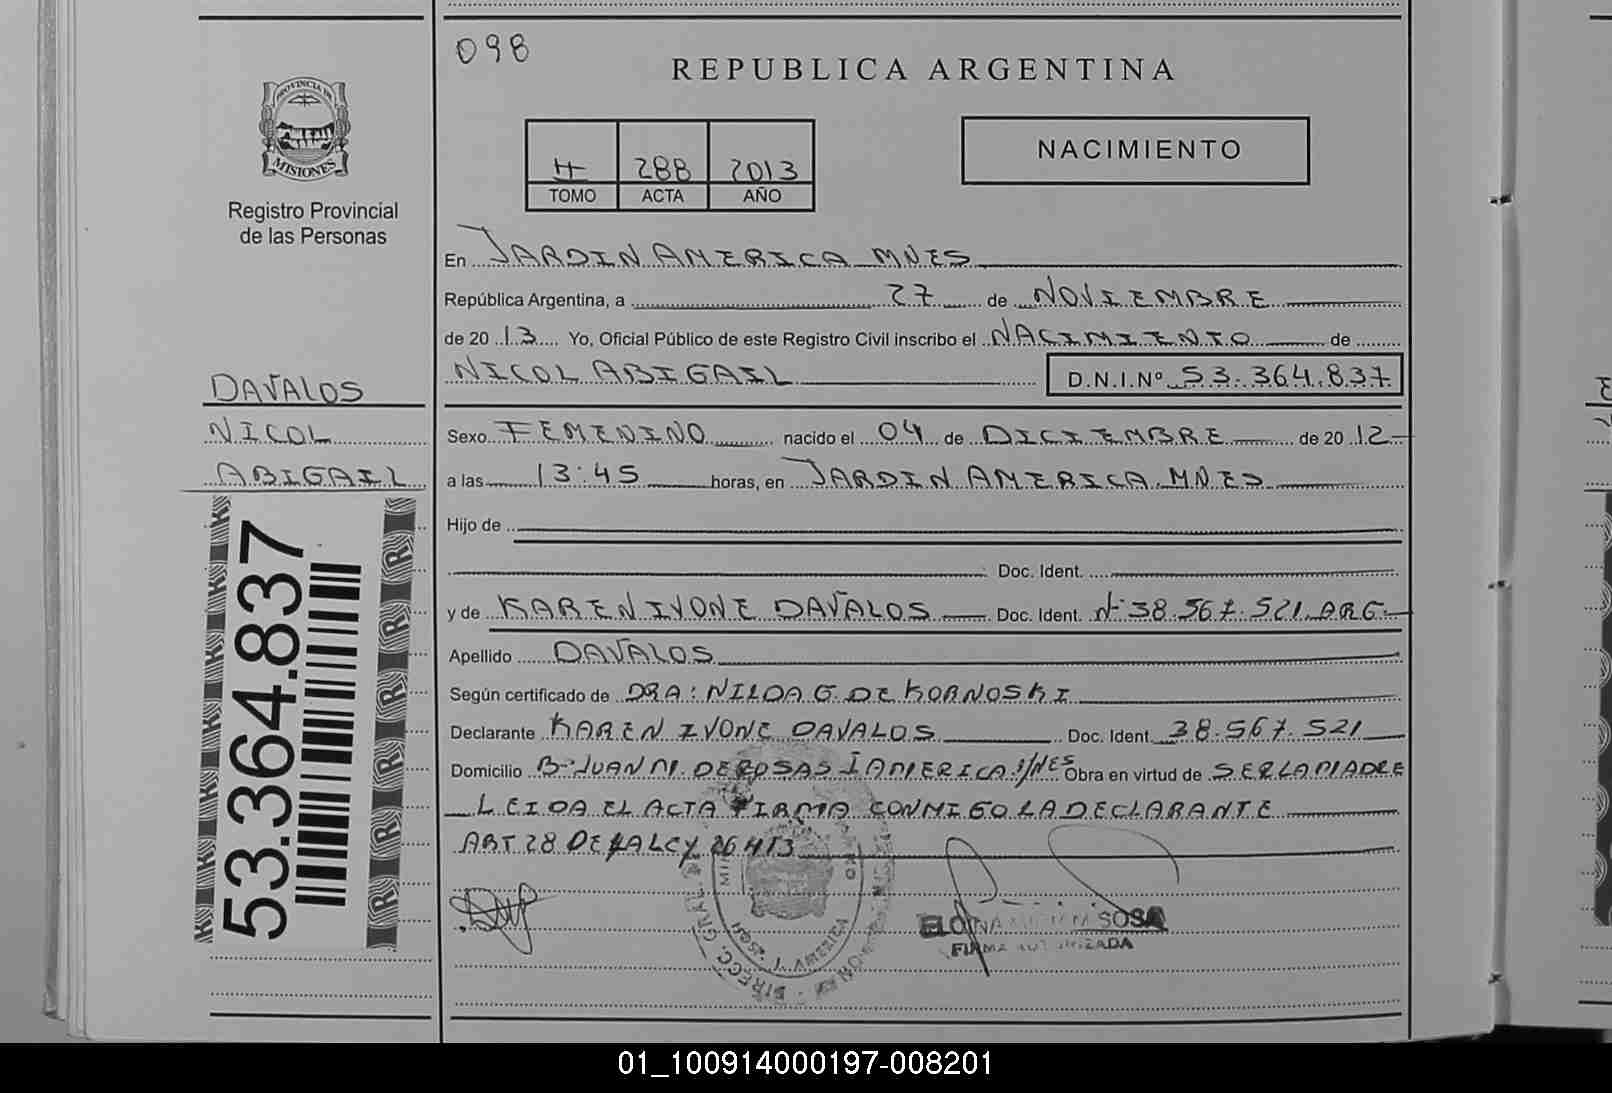 098
REPUBLICA ARGENTINA
PROVINCIA DE
MISIONES
Registro Provincial
de las Personas
II 288 2013
TOMO ACTA AÑO
NACIMIENTO
En JARDIN AMERICA MNES
República Argentina, a 27 de NOVIEMBRE
de 2013 Yo, Oficial Público de este Registro Civil inscribo el NACIMIENTO de
NICOL ABIGAIL D.N.I.Nº 53.364.837
DAVALOS
NICOL
ABIGAIL
53.364.837
Sexo FEMENINO nacido el 04 de DICIEMBRE de 2012
a las 13:45 horas, en JARDIN AMERICA MNES
Hijo de
Doc. Ident.
y de KAREN IVONE DAVALOS Doc. Ident. Nº 38.567.521 ARG.
Apellido DAVALOS
Según certificado de DRA: NILDA G. DE KORNOSKI
Declarante KAREN IVONE DAVALOS Doc. Ident. 38.567.521
Domicilio Bº JUAN M. DE ROSAS J AMERICA MNES Obra en virtud de SER LA MADRE
LEIDA EL ACTA FIRMA CONMIGO LA DECLARANTE
ART 28 DE LA LEY 26413
DIRECC. GRAL.
J. AMERICA
SOSA
FIRMA AUTORIZADA
01_100914000197-008201